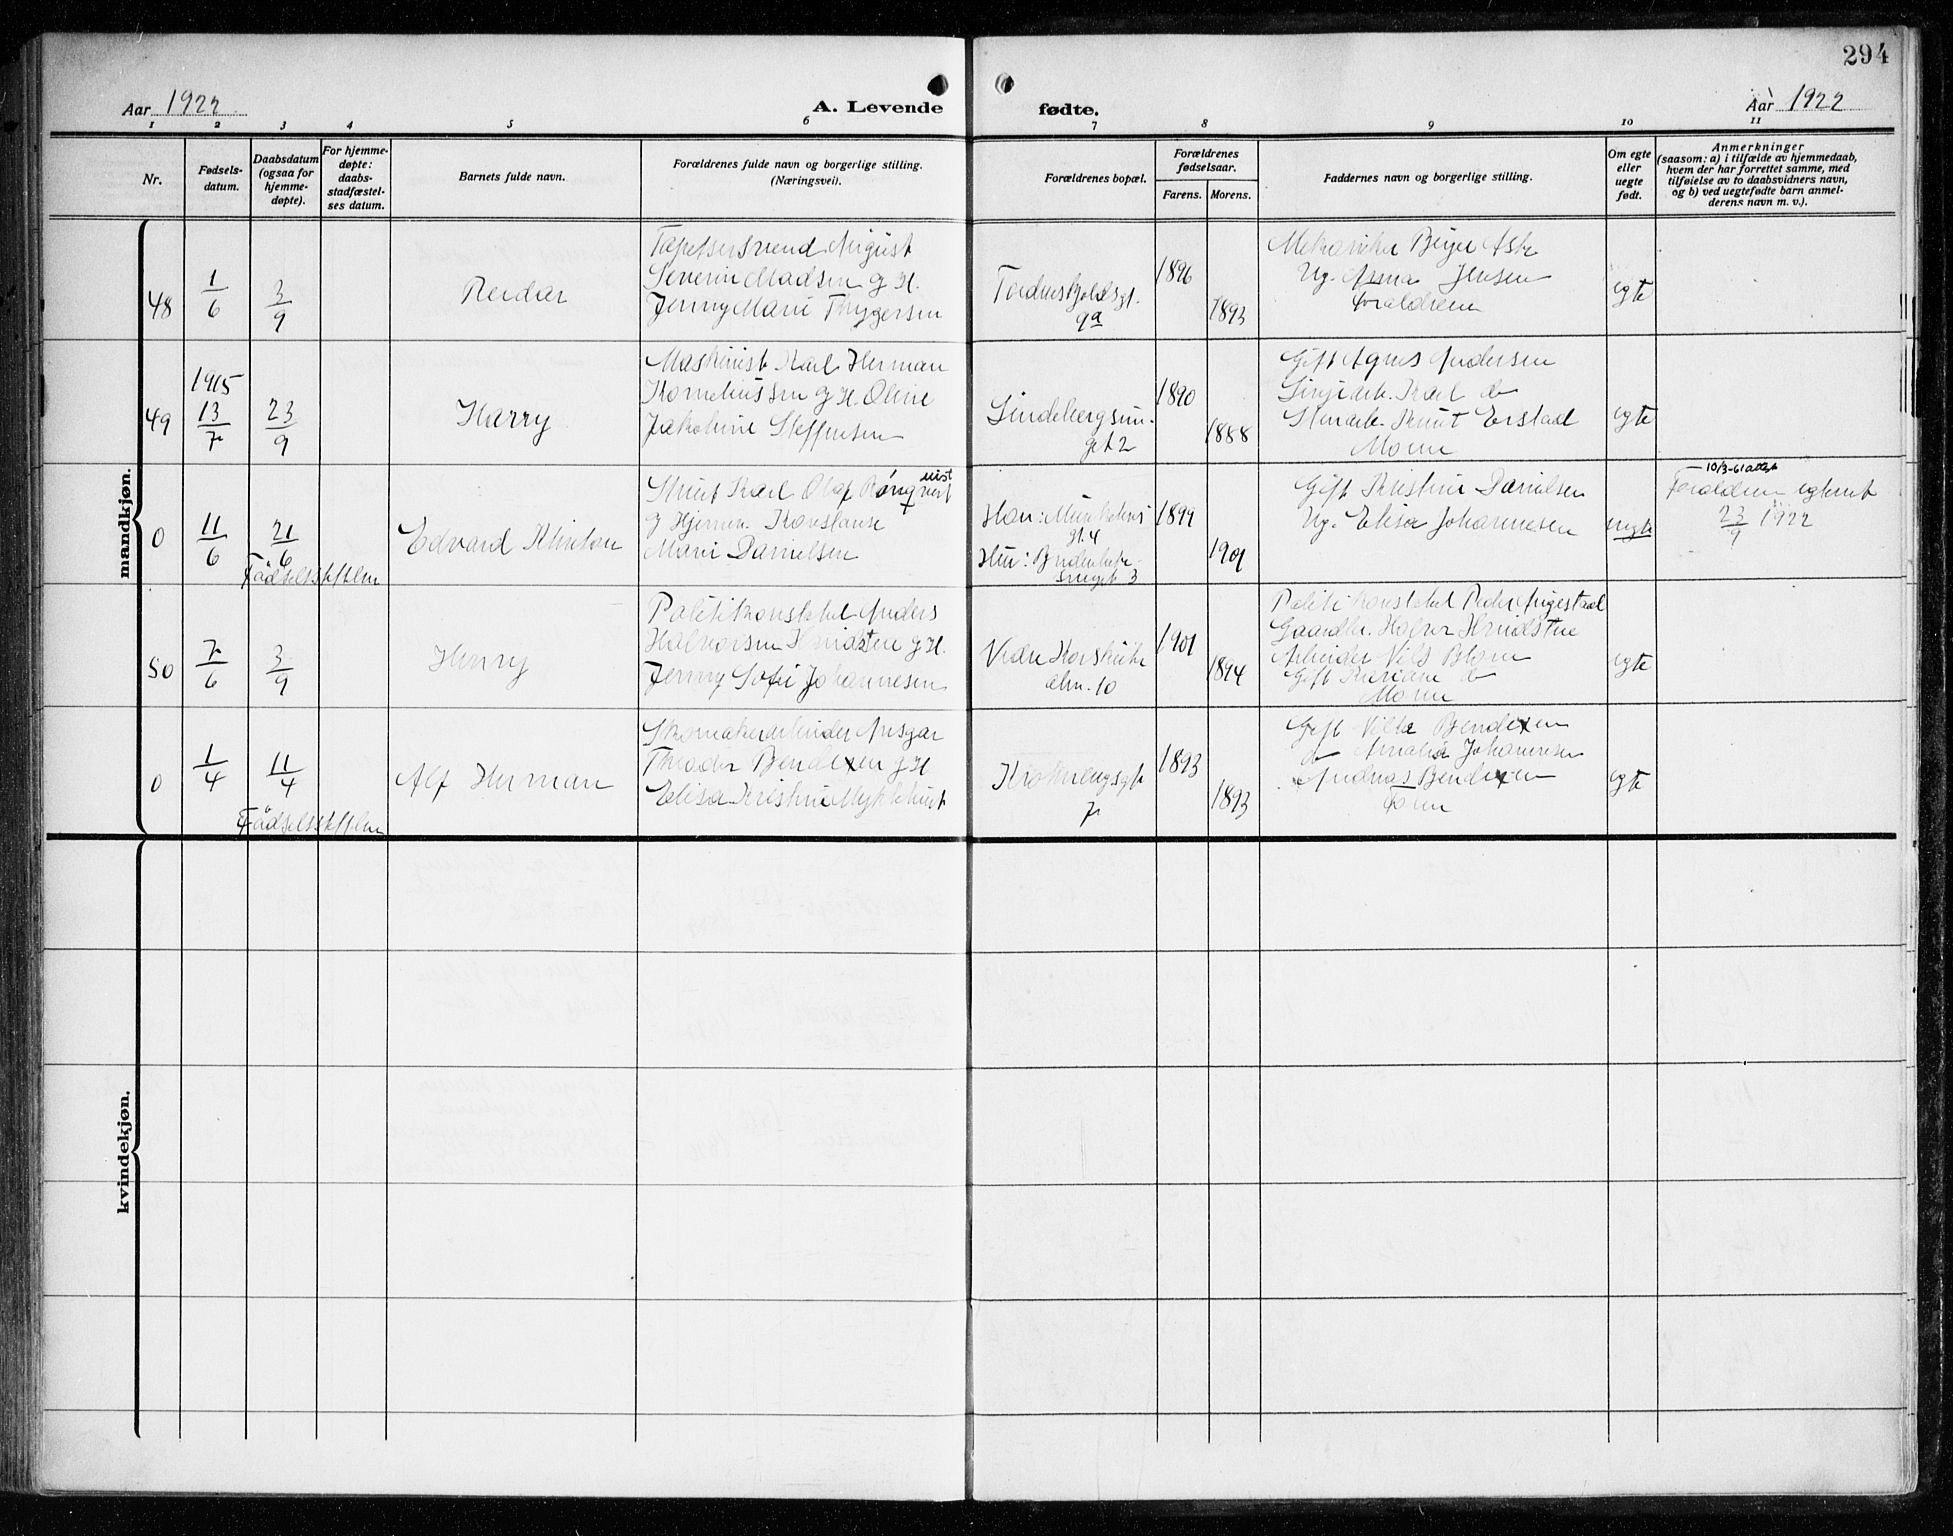 294
Aar 1922
A. Levende
fødte.
Aar 1922
1 2 3 4 5 6 7 8 9 10 11
Nr.
Fødsels-
datum.
Daabsdatum
(ogsaa for
hjemme-
døpte).
For hjemme-
døpte:
daabs-
stadfæstel-
ses datum.
Barnets fulde navn.
Forældrenes fulde navn og borgerlige stilling.
(Næringsvei).
Forældrenes bopæl.
Forældrenes
fødselsaar.
Farens. Morens.
Faddernes navn og borgerlige stilling.
Om egte
eller
uegte
født.
Anmerkninger
(saasom: a) i tilfælde av hjemmedaab,
hvem der har forrettet samme, med
tilføielse av to daabsvidners navn,
og b) ved uegtefødte barn anmel-
derens navn m. v.).
mandkjøn.
48
1/6
3/9
Reidar
Tapetsersvend August
Severin Madsen g H.
Jenny Marie Thygersen
Tordenskjoldsgt.
9a
1896
1893
Mekaniker Birger Ask
Ug. Anna Jensen
Forældrene
egte
49
1915
13/7
23/9
Harry
Maskinist Karl Herman
Korneliussen g H. Oline
Jakobine Steffensen
Lindebergsmu-
get 2
1890
1888
Gift Agnes Andersen
Karl do
Knut Erstad
Moren
egte
0
11/6
21/6
Fødselsstiftelsen
Edvard Kristian
Karl Olaf Rönqvist
nist
g Hjemme. Konstanse
Marie Danielsen
Han: Munkebæks
gt. 4
Hun:
smuget 3
1899
1901
Gift Kristine Danielsen
Ug. Elisa Johannesen
uegte
10/3-61 attest
Forældrene egteviet
23/9 1922
50
7/6
3/9
Henry
Politikonstabel Anders
Halvorsen Kvidsten g H.
Jenny Sofie Johannesen
Vedre Korskirke
alm. 10
1901
1894
Politikonstabel Peder Augestad
Gaardbr. Halvor
Arbeider Nils Blom
Gift Mariane do
Moren
egte
0
1/4
11/4
Fødselsstiftelsen
Alf Herman
Skomakerarbeider Ansgar
Theodor Bendixen g H
Elisa Kristine Myklebust
Kroknengsgt
7
1893
1893
Gift Vilha Bendixen
do Amalia Johannesen
Andreas Bendixen
Faren
egte
kvindekjøn.